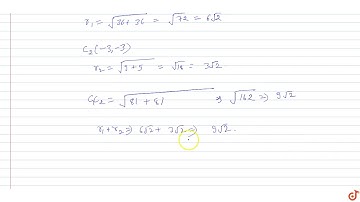 r₁ = √36+36 = √72 = 6√2
C₂(-3,-3)
r₂ = √9+9 = √18 = 3√2
C₁C₂ = √81+81 ⇒ √162 ⇒ 9√2
r₁+r₂ ⇒ 6√2 + 3√2 ⇒ 9√2.